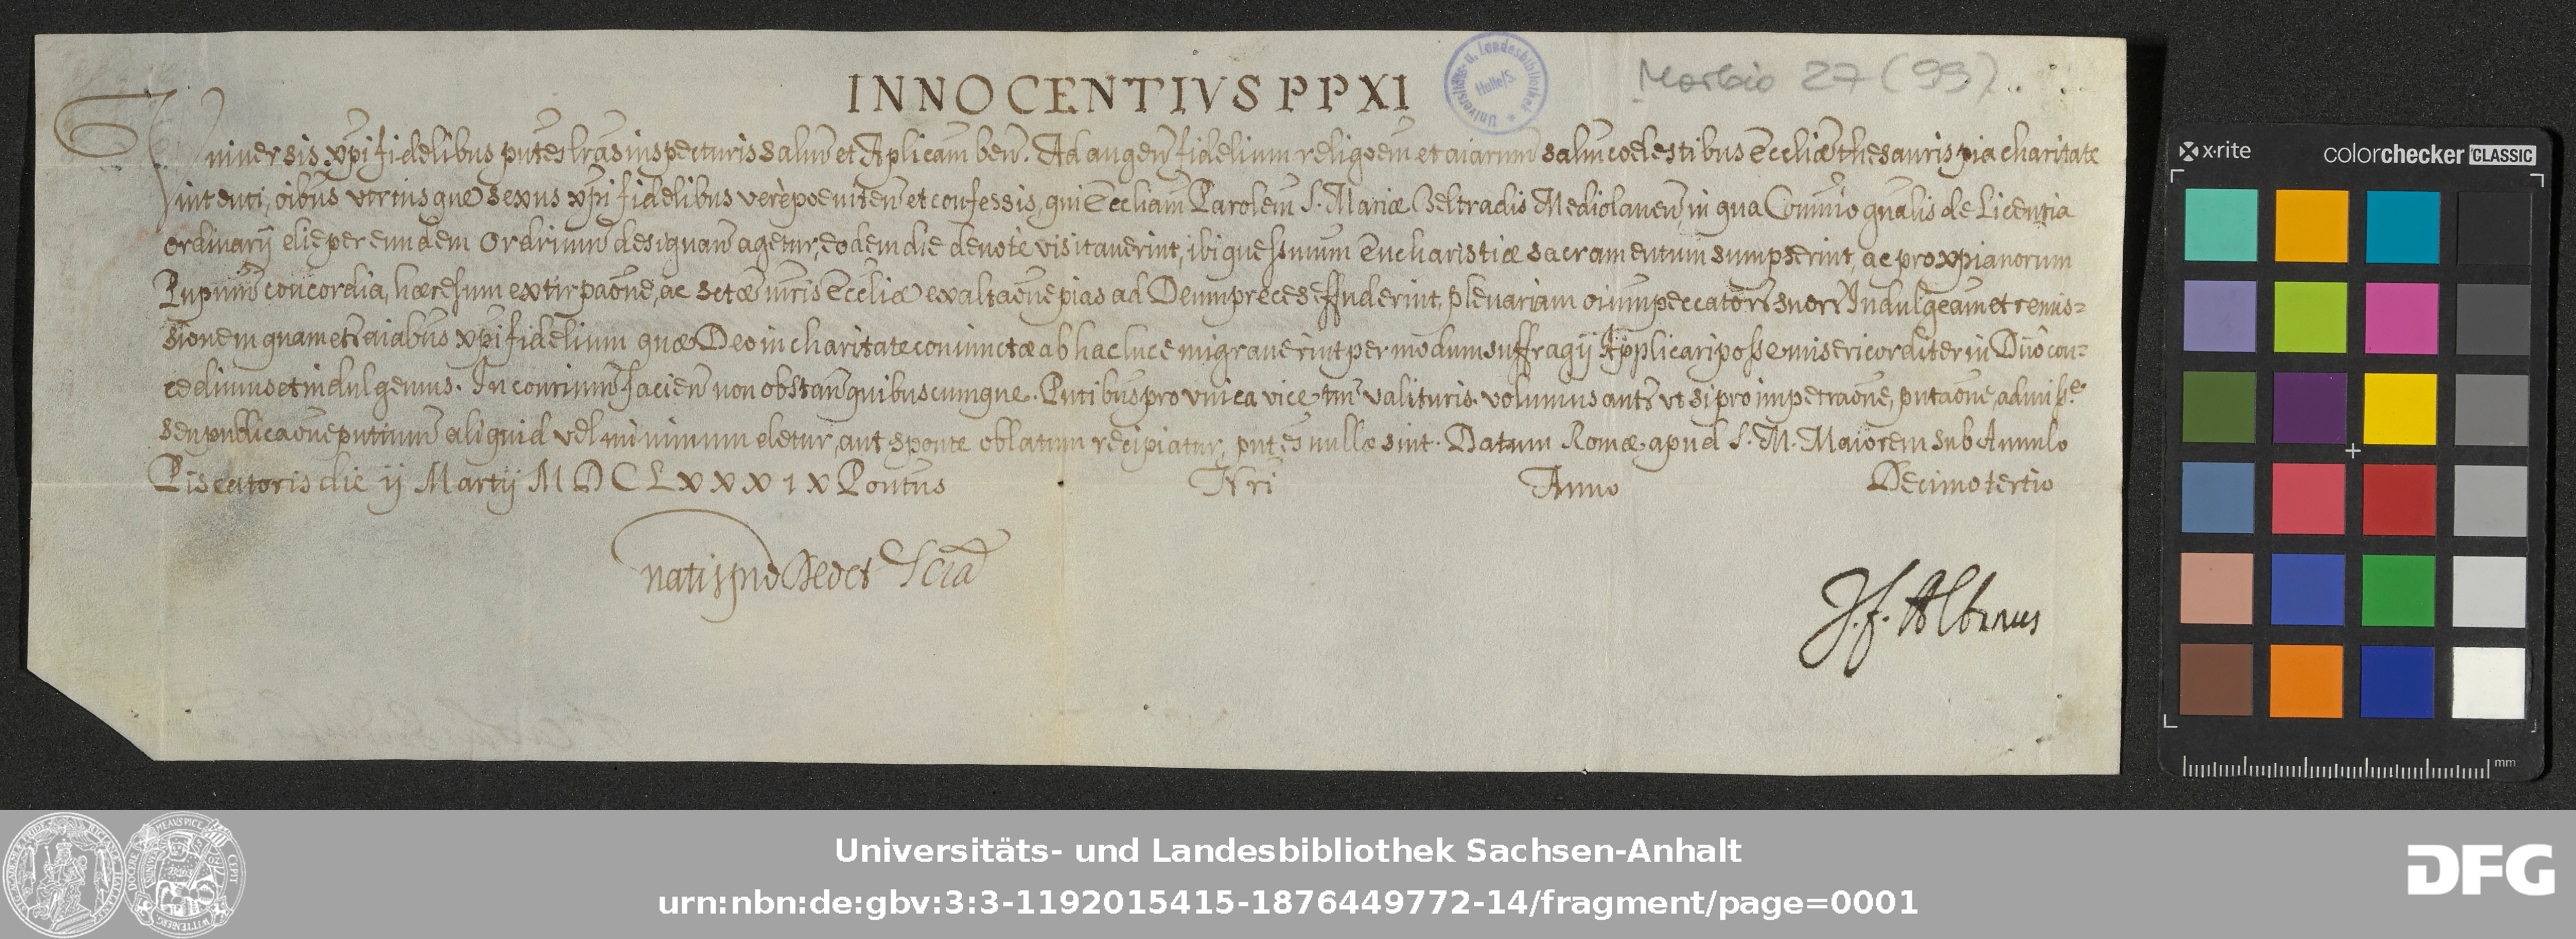 INNOCENTIVS PP XI
Morbio 27 (99)
Universitäts- u. Landesbibliothek Halle/S.
Vniversis xpi fidelibus pntes lras inspecturis salutem et Aplicam ben. Ad augen fidelium religoem et aiarum salutem coelestibus Eccliae thesauris pia charitate
intenti, oibus utriusque sexus xpi fidelibus verè poeniten et confessis, qui Eccliam Parolem S. Mariae Beltradis Mediolanen, in qua Comunio gnalis de Licentia
ordinarij die per eundem Ordrium designan agetur, eodem die devotè visitaverint, ibique ssmum Eucharistiae sacramentum sumpserint, ac pro xpianorum
Pnpum concordia, haeresum extirpaone, ac sctae mris Eccliae exaltaone pias ad Deum preces effuderint, plenariam oium peccator suor Indulgeam et remis=
sionem quam et aiabus xpi fidelium quae Deo in charitate coniunctae ab hac luce migraverint per modum suffragij Applicari posse misericorditer in Dno con=
cedimus et indulgemus. In contrium facien non obstan quibuscumque. Pntibus pro unica vice tm valituris. volumus aut ut si pro impetraone, pntaone, admisse
seu publicaone pntium aliquid vel minimum detur, aut sponte oblatum recipiatur, pntes nullae sint. Datum Romae apud S. M. Maiorem sub Annulo
Piscatoris die ij Martij MDCLXXXIX Pontus Nri Anno Decimotertio
J. f. Albanus
x-rite
colorchecker CLASSIC
mm
Universitäts- und Landesbibliothek Sachsen-Anhalt
urn:nbn:de:gbv:3:3-1192015415-1876449772-14/fragment/page=0001
DFG